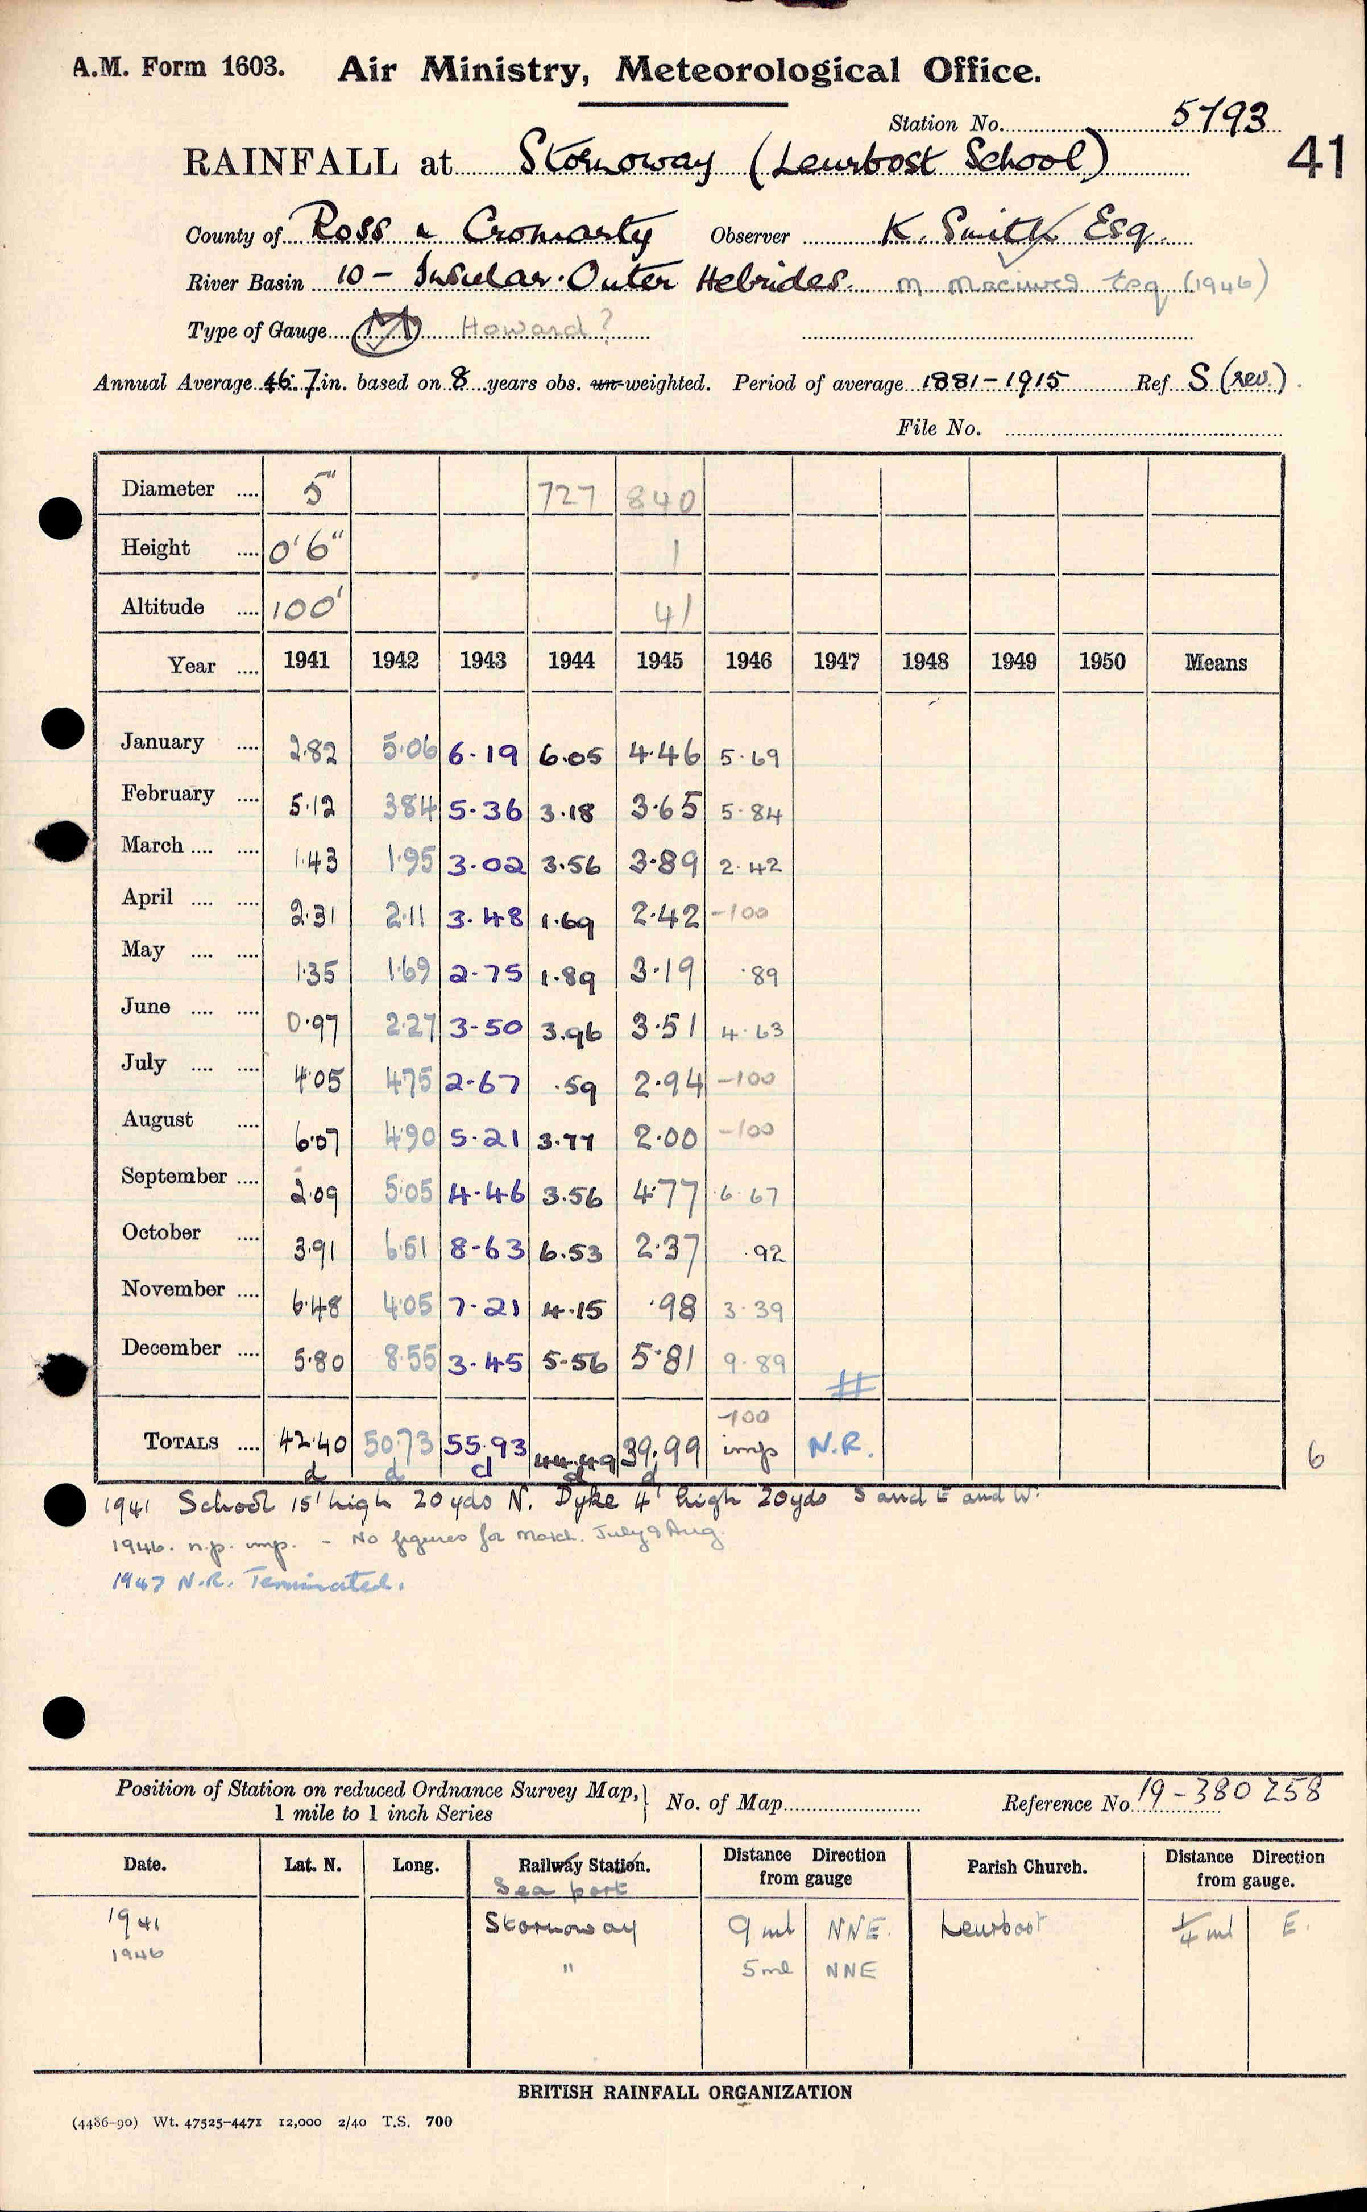 A.M. Form 1603. Air Ministry, Meteorological Office.
Station No. 5793
RAINFALL at Stornoway (Leurbost School) 41
County of Ross & Cromarty Observer K. Smith Esq.
River Basin 10 - Insular. Outer Hebrides. M Esq (1946)
Type of Gauge M Howard?
Annual Average 46.7 in. based on 8 years obs. un-weighted. Period of average 1881-1915 Ref S (rev.)
File No.
Diameter .... 5" 727 840
Height .... 0'6" 1
Altitude .... 100' 41
Year .... 1941 1942 1943 1944 1945 1946 1947 1948 1949 1950 Means
January .... 2.82 5.06 6.19 6.05 4.46 5.69
February .... 5.12 3.84 5.36 3.18 3.65 5.84
March .... .... 1.43 1.95 3.02 3.56 3.89 2.42
April .... .... 2.31 2.11 3.48 1.69 2.42 -100
May .... .... 1.35 1.69 2.75 1.89 3.19 .89
June .... .... 0.97 2.27 3.50 3.96 3.51 4.63
July .... .... 4.05 4.75 2.67 .59 2.94 -100
August .... 6.07 4.90 5.21 3.77 2.00 -100
September .... 2.09 5.05 4.46 3.56 4.77 6.67
October .... 3.91 6.51 8.63 6.53 2.37 .92
November .... 6.48 4.05 7.21 4.15 .98 3.39
December .... 5.80 8.55 3.45 5.56 5.81 9.89 #
-100
TOTALS .... 42.40 50.73 55.93 44.49 39.99 imp N.R. 6
d d d d d
1941 School 15' high 20 yds N. Dyke 4' high 20 yds S and E and W.
1946. n.p. imp. - No figures for March. July & Aug.
1947 N.R. Terminated.
Position of Station on reduced Ordnance Survey Map, 1 mile to 1 inch Series No. of Map Reference No 19-380258
Date. Lat. N. Long. Railway Station. Distance from gauge Direction Parish Church. Distance from gauge. Direction
Sea port
1941 Stornoway 9 ml NNE. Leurbost 1/4 ml E.
1946 " 5 ml NNE
BRITISH RAINFALL ORGANIZATION
(4486-90) Wt. 47525-4471 12,000 2/40 T.S. 700